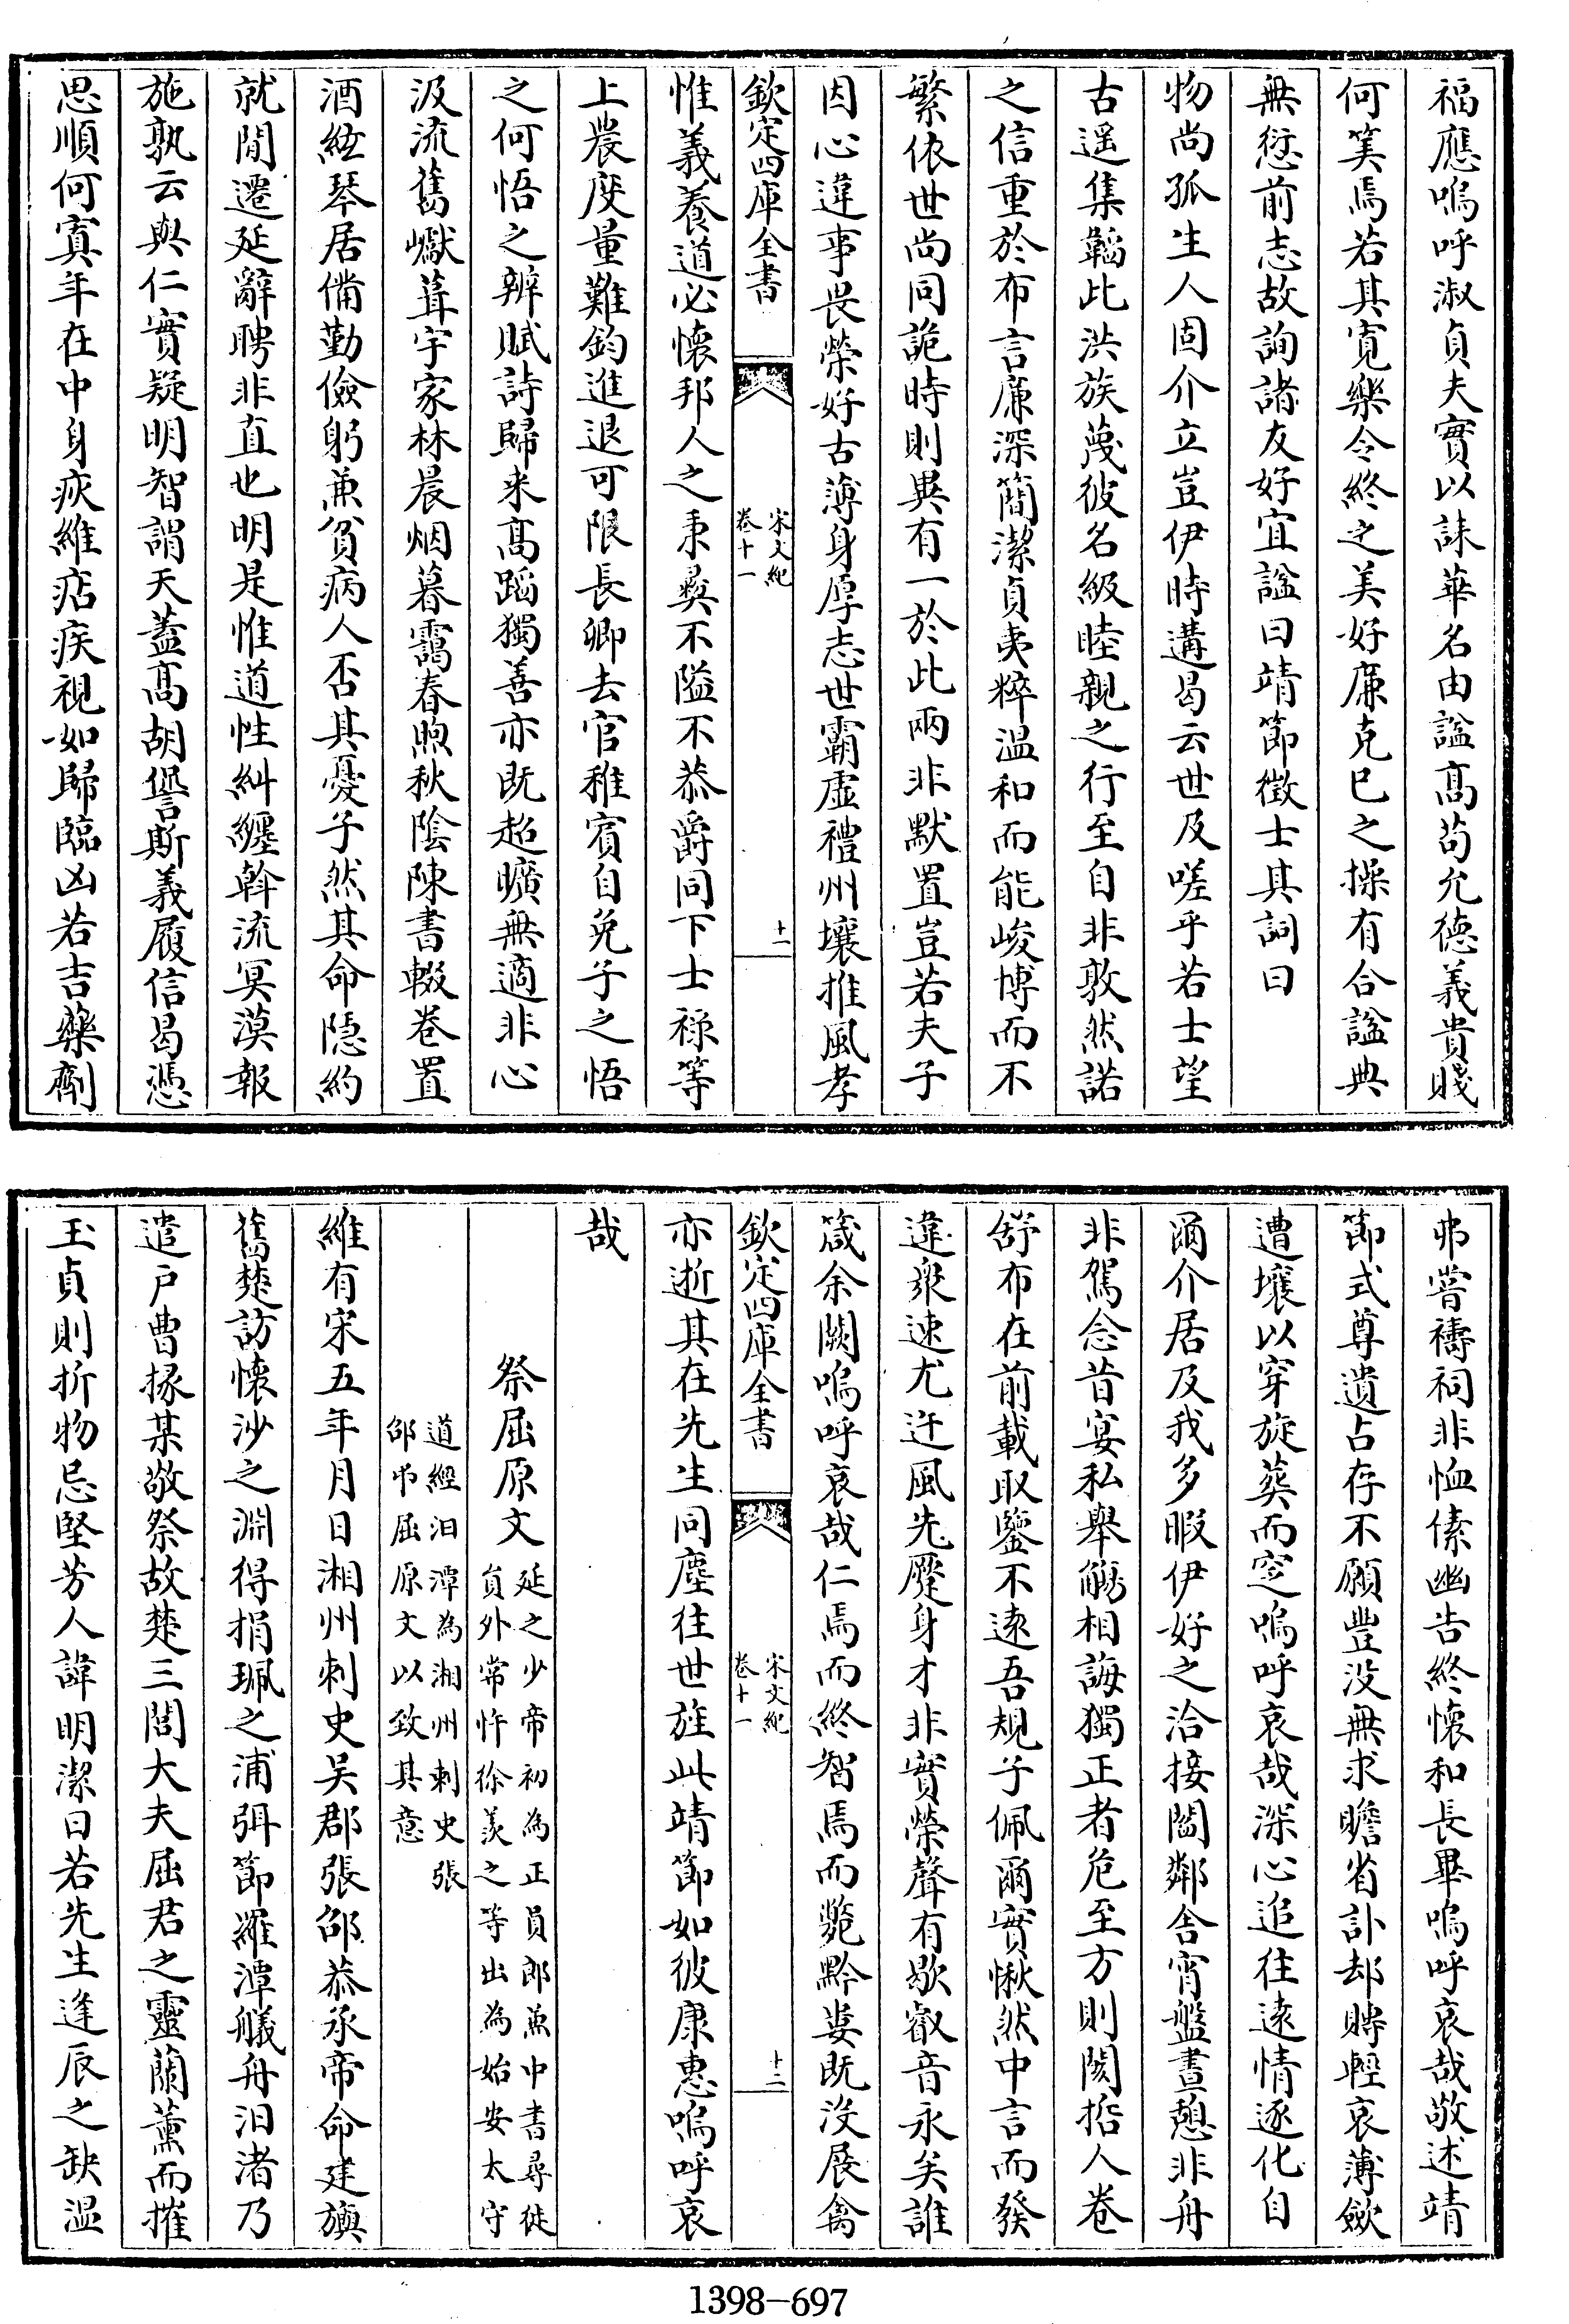 福應嗚呼淑貞夫實以誄華名由諡髙苟允德義貴賤
何筭焉若其寛樂令終之美好㢘克已之操有合諡典
無愆前志故詢諸友好宜諡曰靖節徴士其詞曰
物尚孤生人固介立豈伊時遘曷云世及嗟乎若士望
古遥集韜此洪族蔑彼名級睦親之行至自非敦然諾
之信重於布言㢘深簡潔貞夷粹温和而能峻博而不
繁依世尚同詭時則異有一於此兩非默置豈若夫子
因心違事畏榮好古薄身厚志世霸虚禮州壤推風孝
欽定四庫全書
宋文紀
卷十一
十一
惟義養道必懷邦人之秉彞不隘不恭爵同下士禄等
上農度量難鈞進退可限長卿去官稚賓自免子之悟
之何悟之辨賦詩歸來髙蹈獨善亦既超曠無適非心
汲流舊巘葺宇家林晨烟暮靄春煦秋陰陳書輟卷置
酒絃琴居備勤儉躬兼貧病人否其憂子然其命隠約
就閒遷延辭聘非直也明是惟道性糾纆斡流冥漠報
施孰云與仁實疑明智謂天蓋髙胡諐斯義履信曷憑
思順何寘年在中身疢維痁疾視如歸臨凶若吉藥劑
弗嘗禱祠非恤傃幽告終懷和長畢嗚呼哀哉敬述靖
節式尊遺占存不願豐没無求贍省訃却賻輕哀薄斂
遭壤以穿旋葬而窆嗚呼哀哉深心追往逺情逐化自
爾介居及我多暇伊好之洽接閻鄰舍宵盤晝憩非舟
非駕念昔宴私舉觴相誨獨正者危至方則閡哲人卷
舒布在前載取鑒不逺吾規子佩爾實愀然中言而發
違衆速尤迕風先蹷身才非實榮聲有歇叡音永矣誰
箴余闕嗚呼哀哉仁焉而終智焉而斃黔婁既没展禽
欽定四庫全書
宋文紀
卷十一
十二
亦逝其在先生同塵往世旌此靖節如彼康惠嗚呼哀
哉
祭屈原文
延之少帝初為正員郎兼中書尋徙
員外常忤徐羨之等出為始安太守
道經汨潭為湘州刺史張
邵弔屈原文以致其意
維有宋五年月日湘州刺史吴郡張邵恭承帝命建旟
舊楚訪懷沙之淵得捐珮之浦弭節羅潭艤舟汨渚乃
遣户曹掾某敬祭故楚三閭大夫屈君之靈蘭薰而摧
玉貞則折物忌堅芳人諱明潔曰若先生逢辰之缺温
1398—697